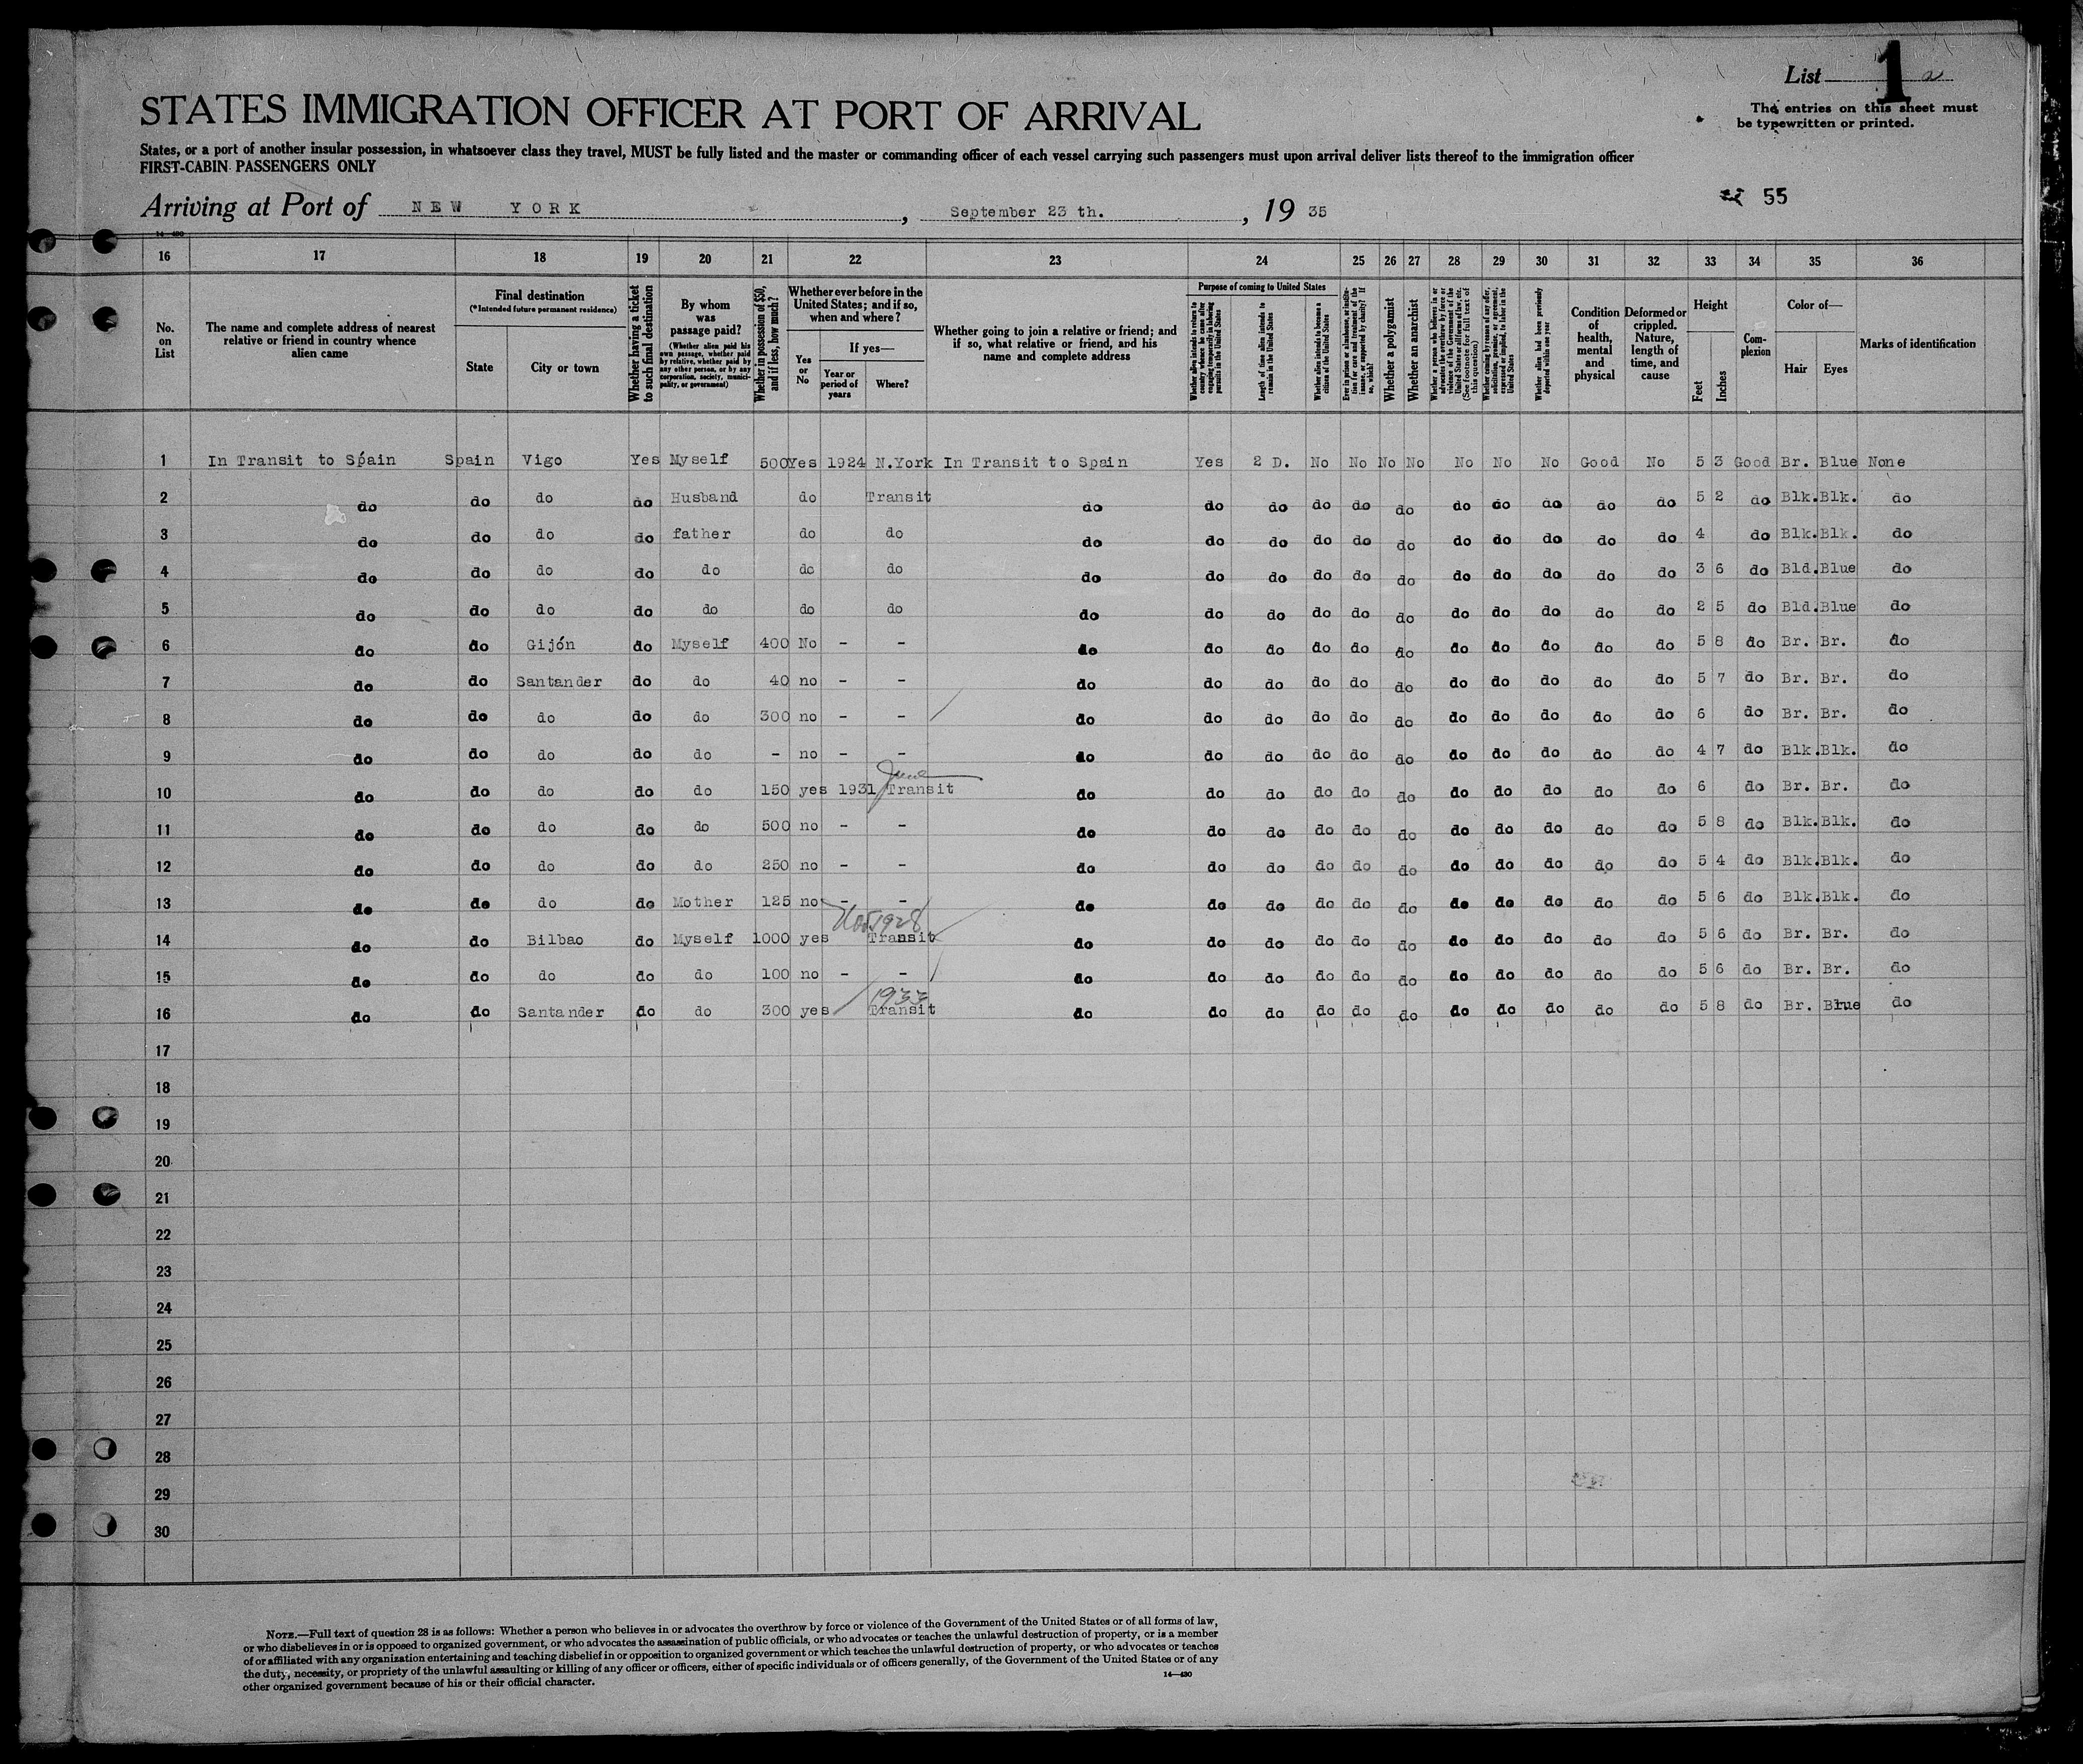 List 1 a
The entries on this sheet must
be typewritten or printed.
STATES IMMIGRATION OFFICER AT PORT OF ARRIVAL
States, or a port of another insular possession, in whatsoever class they travel, MUST be fully listed and the master or commanding officer of each vessel carrying such passengers must upon arrival deliver lists thereof to the immigration officer
FIRST-CABIN PASSENGERS ONLY
55
Arriving at Port of NEW YORK, September 23 th., 19 35
14—480
16 17 18 19 20 21 22 23 24 25 26 27 28 29 30 31 32 33 34 35 36
No. on List
The name and complete address of nearest relative or friend in country whence alien came
Final destination (*Intended future permanent residence)
State
City or town
Whether having a ticket to such final destination
By whom was passage paid? (Whether alien paid his own passage, whether paid by relative, whether paid by any other person, or by any corporation, society, municipality, or government)
Whether in possession of $50, and if less, how much?
Whether ever before in the United States; and if so, when and where?
Yes or No
If yes—
Year or period of years
Where?
Whether going to join a relative or friend; and if so, what relative or friend, and his name and complete address
Purpose of coming to United States
Whether alien intends to return to country whence he came after engaging temporarily in laboring pursuits in the United States
Length of time alien intends to remain in the United States
Whether alien intends to become a citizen of the United States
Ever in prison or almshouse, or institution for care and treatment of the insane, or supported by charity? If so, which?
Whether a polygamist
Whether an anarchist
Whether a person who believes in or advocates the overthrow by force or violence of the Government of the United States or all forms of law, etc. (See footnote for full text of this question)
Whether coming by reason of any offer, solicitation, promise, or agreement, expressed or implied, to labor in the United States
Whether alien had been previously deported within one year
Condition of health, mental and physical
Deformed or crippled. Nature, length of time, and cause
Height
Feet
Inches
Complexion
Color of—
Hair
Eyes
Marks of identification
1 In Transit to Spain Spain Vigo Yes Myself 500 Yes 1924 N.York In Transit to Spain Yes 2 D. No No No No No No No Good No 5 3 Good Br. Blue None
2 do do do do Husband do Transit do do do do do do do do do do do 5 2 do Blk. Blk. do
3 do do do do father do do do do do do do do do do do do do 4 do Blk. Blk. do
4 do do do do do do do do do do do do do do do do do do 3 6 do Bld. Blue do
5 do do do do do do do do do do do do do do do do do do 2 5 do Bld. Blue do
6 do do Gijón do Myself 400 No - - do do do do do do do do do do do 5 8 do Br. Br. do
7 do do Santander do do 40 no - - do do do do do do do do do do do 5 7 do Br. Br. do
8 do do do do do 300 no - - do do do do do do do do do do do 6 do Br. Br. do
9 do do do do do - no - - do do do do do do do do do do do 4 7 do Blk. Blk. do
June
10 do do do do do 150 yes 1931 Transit do do do do do do do do do do do 6 do Br. Br. do
11 do do do do do 500 no - - do do do do do do do do do do do 5 8 do Blk. Blk. do
12 do do do do do 250 no - - do do do do do do do do do do do 5 4 do Blk. Blk. do
13 do do do do Mother 125 no - - do do do do do do do do do do do 5 6 do Blk. Blk. do
1928
14 do do Bilbao do Myself 1000 yes Transit do do do do do do do do do do do 5 6 do Br. Br. do
15 do do do do do 100 no - - do do do do do do do do do do do 5 6 do Br. Br. do
1933
16 do do Santander do do 300 yes Transit do do do do do do do do do do do 5 8 do Br. Blue do
17
18
19
20
21
22
23
24
25
26
27
28
29
30
NOTE.—Full text of question 28 is as follows: Whether a person who believes in or advocates the overthrow by force or violence of the Government of the United States or of all forms of law,
or who disbelieves in or is opposed to organized government, or who advocates the assassination of public officials, or who advocates or teaches the unlawful destruction of property, or is a member
of or affiliated with any organization entertaining and teaching disbelief in or opposition to organized government or which teaches the unlawful destruction of property, or who advocates or teaches
the duty, necessity, or propriety of the unlawful assaulting or killing of any officer or officers, either of specific individuals or of officers generally, of the Government of the United States or of any
other organized government because of his or their official character.
14—480